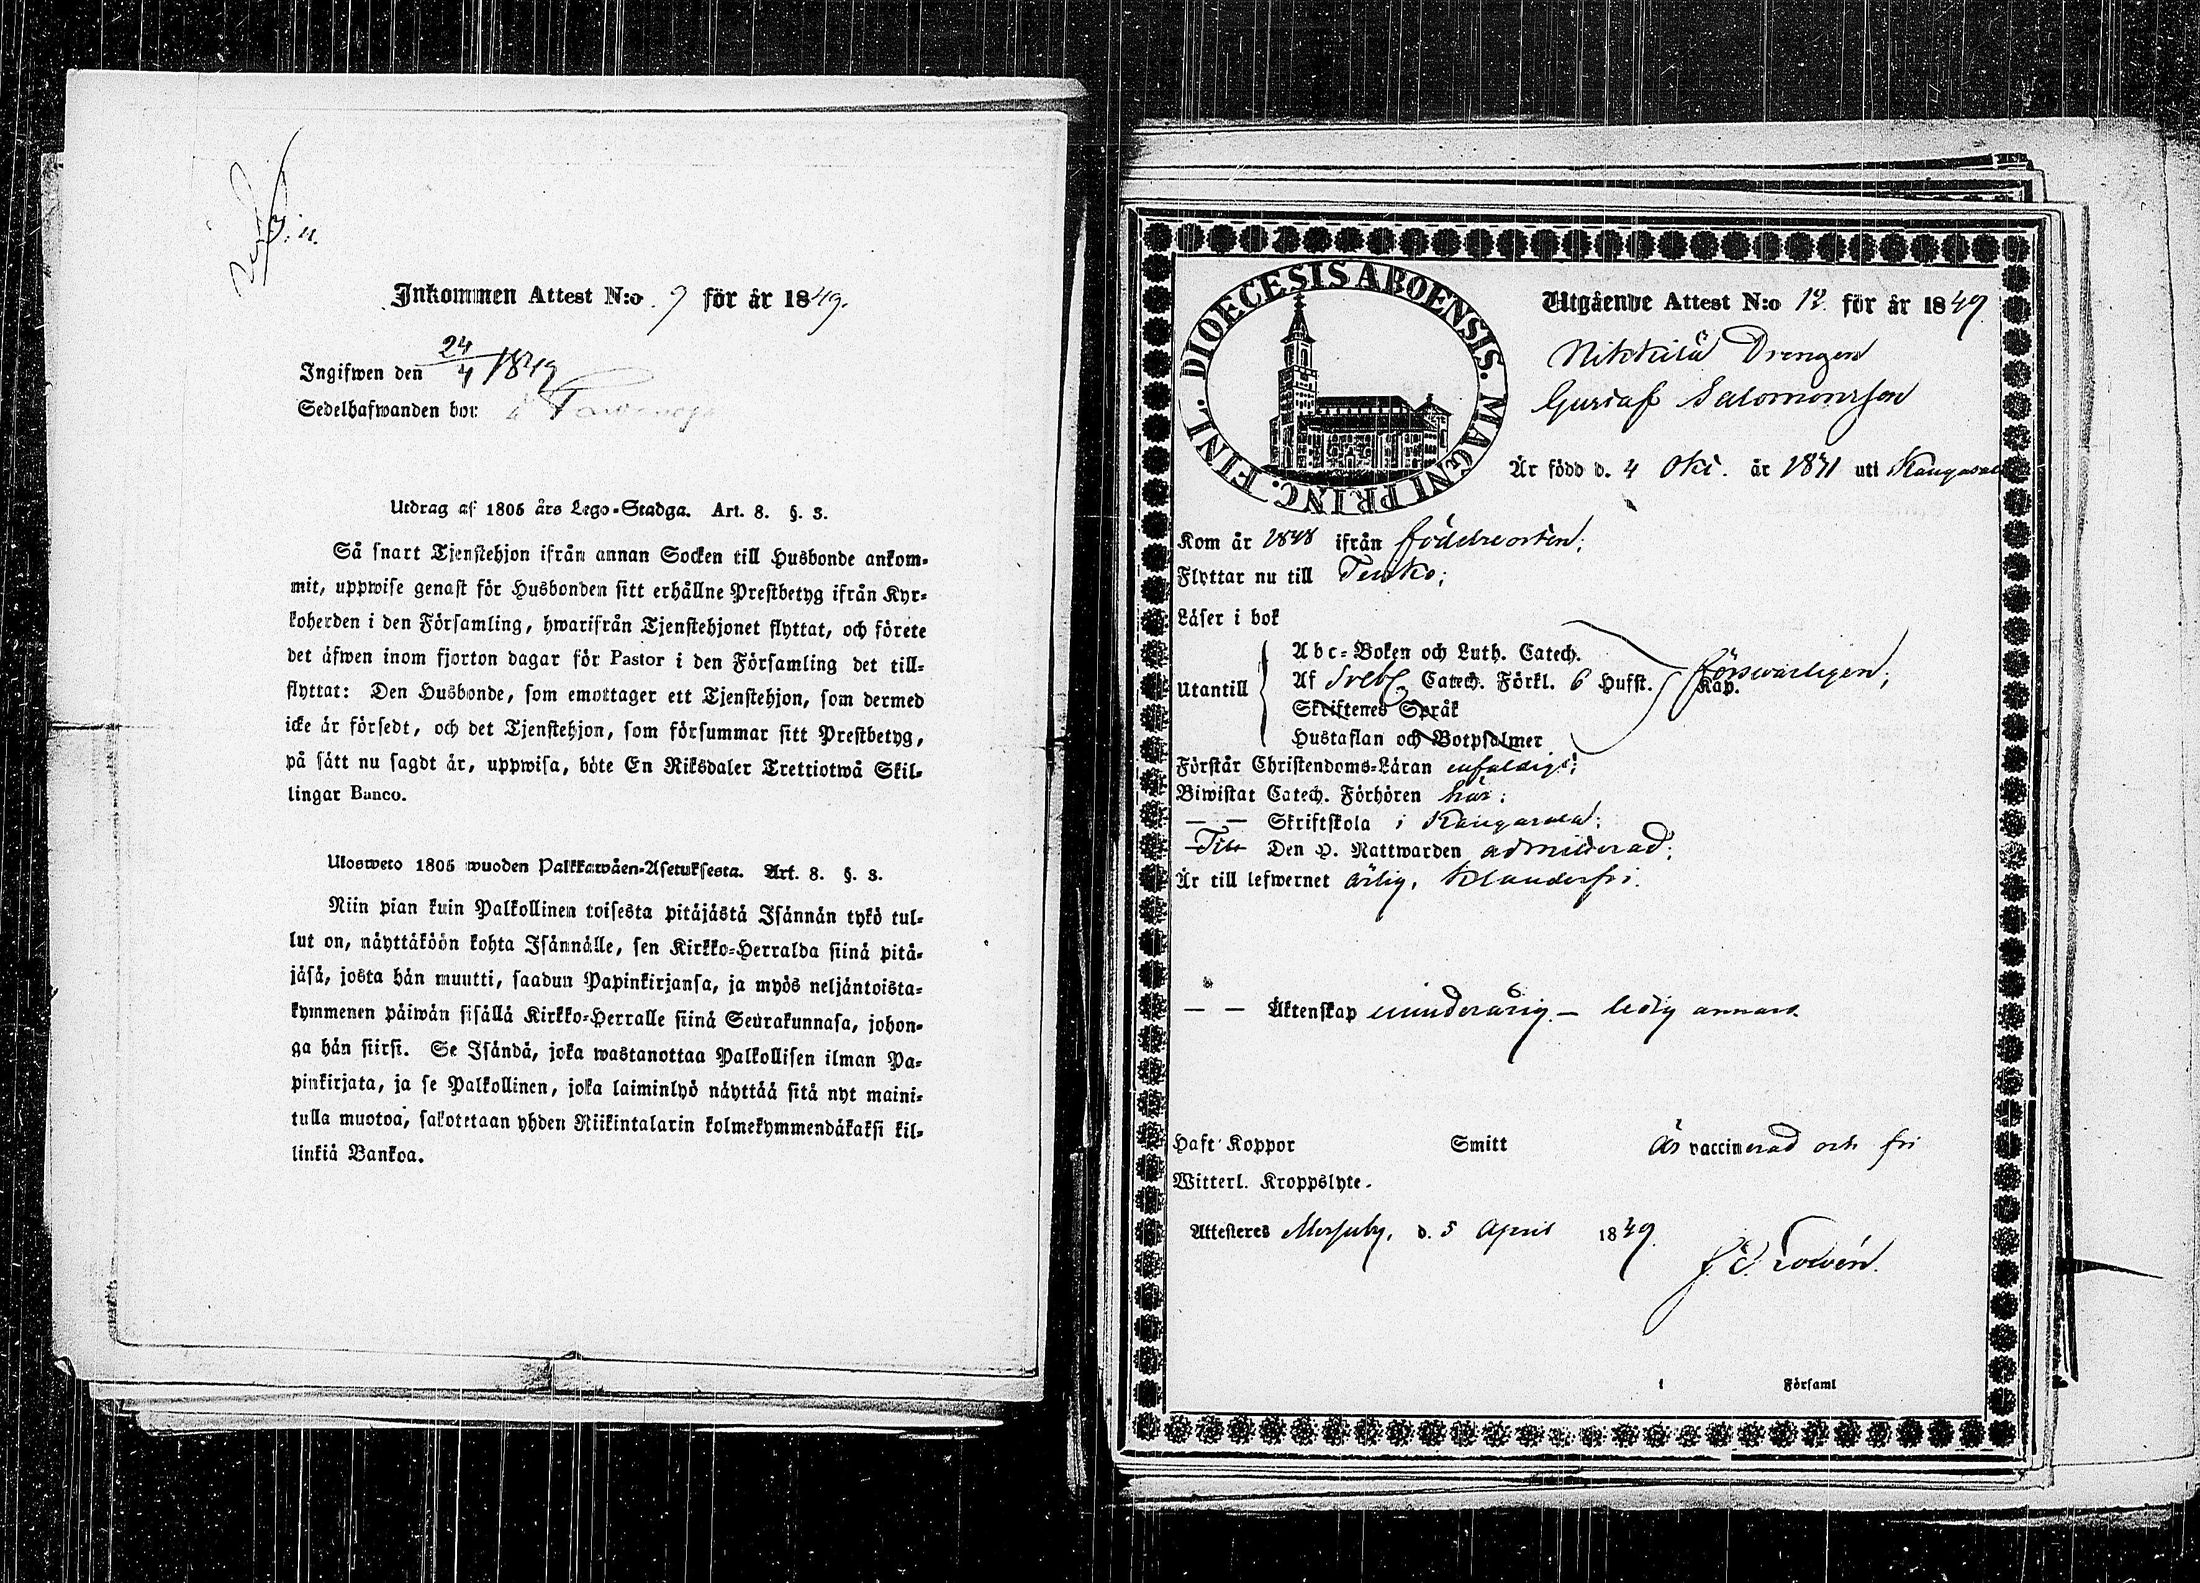 Inkommen Attest N:o 9 för år 1849.
Ingifwen den 24/4 1849
Sedelhafwanden bor:
Utdrag af 1805 års Lego-Stadga. Art. 8. §. 3.
Så snart Tjenstehjon ifrån annan Socken till Husbonde ankom-
mit, uppwise genast för Husbonden sitt erhållne Prestbetyg ifrån Kyr-
koherden i den Församling, hwarifrån Tjenstehjonet flyttat, och förete
det äfwen inom fjorton dagar för Pastor i den Församling det till-
flyttat: Den Husbonde, som emottager ett Tjenstehjon, som dermed
icke är försedt, och det Tjenstehjon, som försummar sitt Prestbetyg,
på sätt nu sagdt är, uppwisa, böte En Riksdaler Trettiotwå Skil-
lingar Banco.
Ulosweto 1805 wuoden Palkkawäen-Asetuksesta. Art. 8. §. 3.
Niin pian kuin Palkollinen toisesta pitäjästä Isännän tykö tul-
lut on, näyttäköön kohta Isännälle, sen Kirkko-Herralda siinä pitä-
jäsä, josta hän muutti, saadun Papinkirjansa, ja myös neljäntoista-
kymmenen päiwän sisällä Kirkko-Herralle siinä Seurakunnasa, johon-
ga hän siirsi. Se Isändä, joka wastanottaa Palkollisen ilman Pa-
pinkirjata, ja se Palkollinen, joka laiminlyö näyttää sitä nyt maini-
tulla muotoa, sakotetaan yhden Riikintalarin kolmekymmendäkaksi kil-
linkiä Bankoa.
DIOECESIS ABOENSIS. MAGNI PRINC. FINL.
Utgående Attest N:o 12 för år 1849
Nikkilä Drengen
Gustaf Salomonsson
Är född d. 4 Okt. år 1831 uti Kangasala
Kom år 1848 ifrån födelseorten;
Flyttar nu till Teisko;
Läser i bok
Abc-Boken och Luth. Catech.
Utantill Af Sveb. Catech. Förkl. 6 Hufst. Kap. försvarligen;
Skriftenes Språk
Hustaflan och Botpsalmer
Förstår Christendoms-Läran enfaldigt;
Biwistat Catech. Förhören här;
— — Skriftskola i Kangasala;
Till Den H. Nattwarden admitterad;
Är till lefwernet ärlig, klanderfri.
— — Äktenskap minderårig — ledig annars.
Haft Koppor Smitt Är vaccinerad och fri
Witterl. Kroppslyte.
Attesteres Messuby, d. 5 April 1849.
i Församl